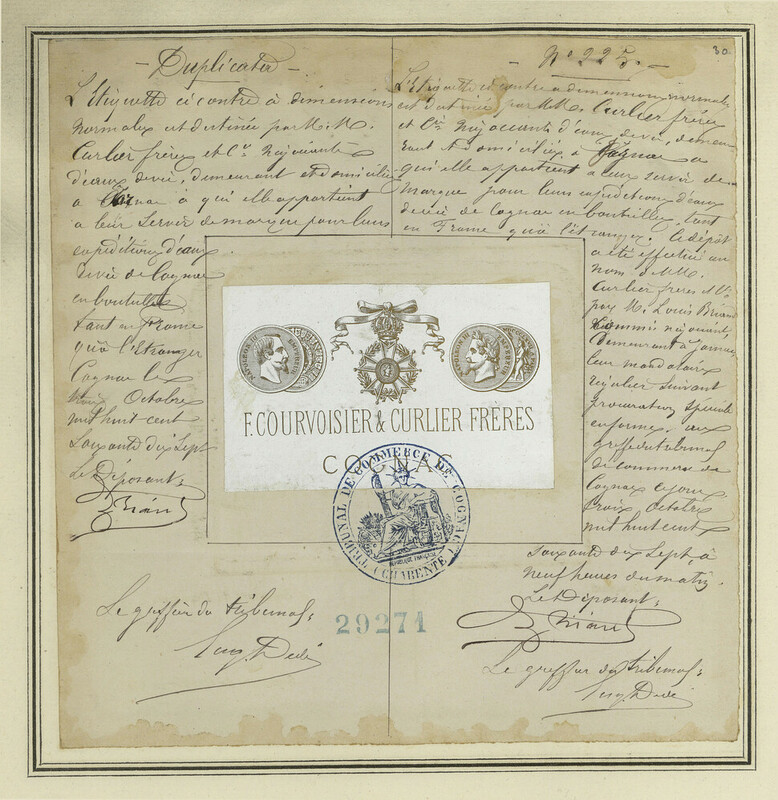 30
- Duplicata -
L'Etiquette ci contre à dimensions
normales est destinée par M. M.
Curlier frères et Cie Négociants
d'eaux devie, demeurant et domiciliés
a Cognac à qui elle appartient
a leur servir de marque pour leurs
expéditions d'eaux
devie de Cognac
en bouteilles
tant en France
qu'à l'Etranger
Cognac le
trois Octobre
mil huit cent
soixante dix sept
Le Déposant:
L. Briand
Le greffier du tribunal:
Eug. Dedé
- No 225. -
L'Etiquette ci contre a dimensions normales
est destinée par M. M. Curlier frères
et Cie Négociants d'eaux devie, demeu
rant et domiciliés à Cognac a
qui elle appartient a leur servir de
marque pour leurs expéditions d'eaux
devie de Cognac en bouteilles, tant
en France qu'à l'étranger. Ce dépôt
a été effectué au
nom de MM.
Curlier frères et Cie
par M. Louis Briand
Commis négociant,
demeurant à Jarnac,
leur mandataire
régulier suivant
procuration spéciale
en forme, au
greffe du tribunal
de commerce de
Cognac cejour
trois Octobre
mil huit cent
soixante dix sept, à
neuf heures du matin.
Le Déposant:
L. Briand
Le greffier du tribunal:
Eug. Dedé
NAPOLEON III EMPEREUR
NAPOLEON III EMPEREUR
F. COURVOISIER & CURLIER FRÈRES
COGNAC
TRIBUNAL DE COMMERCE DE COGNAC
(CHARENTE)
RÉPUBLIQUE FRANÇAISE
29271